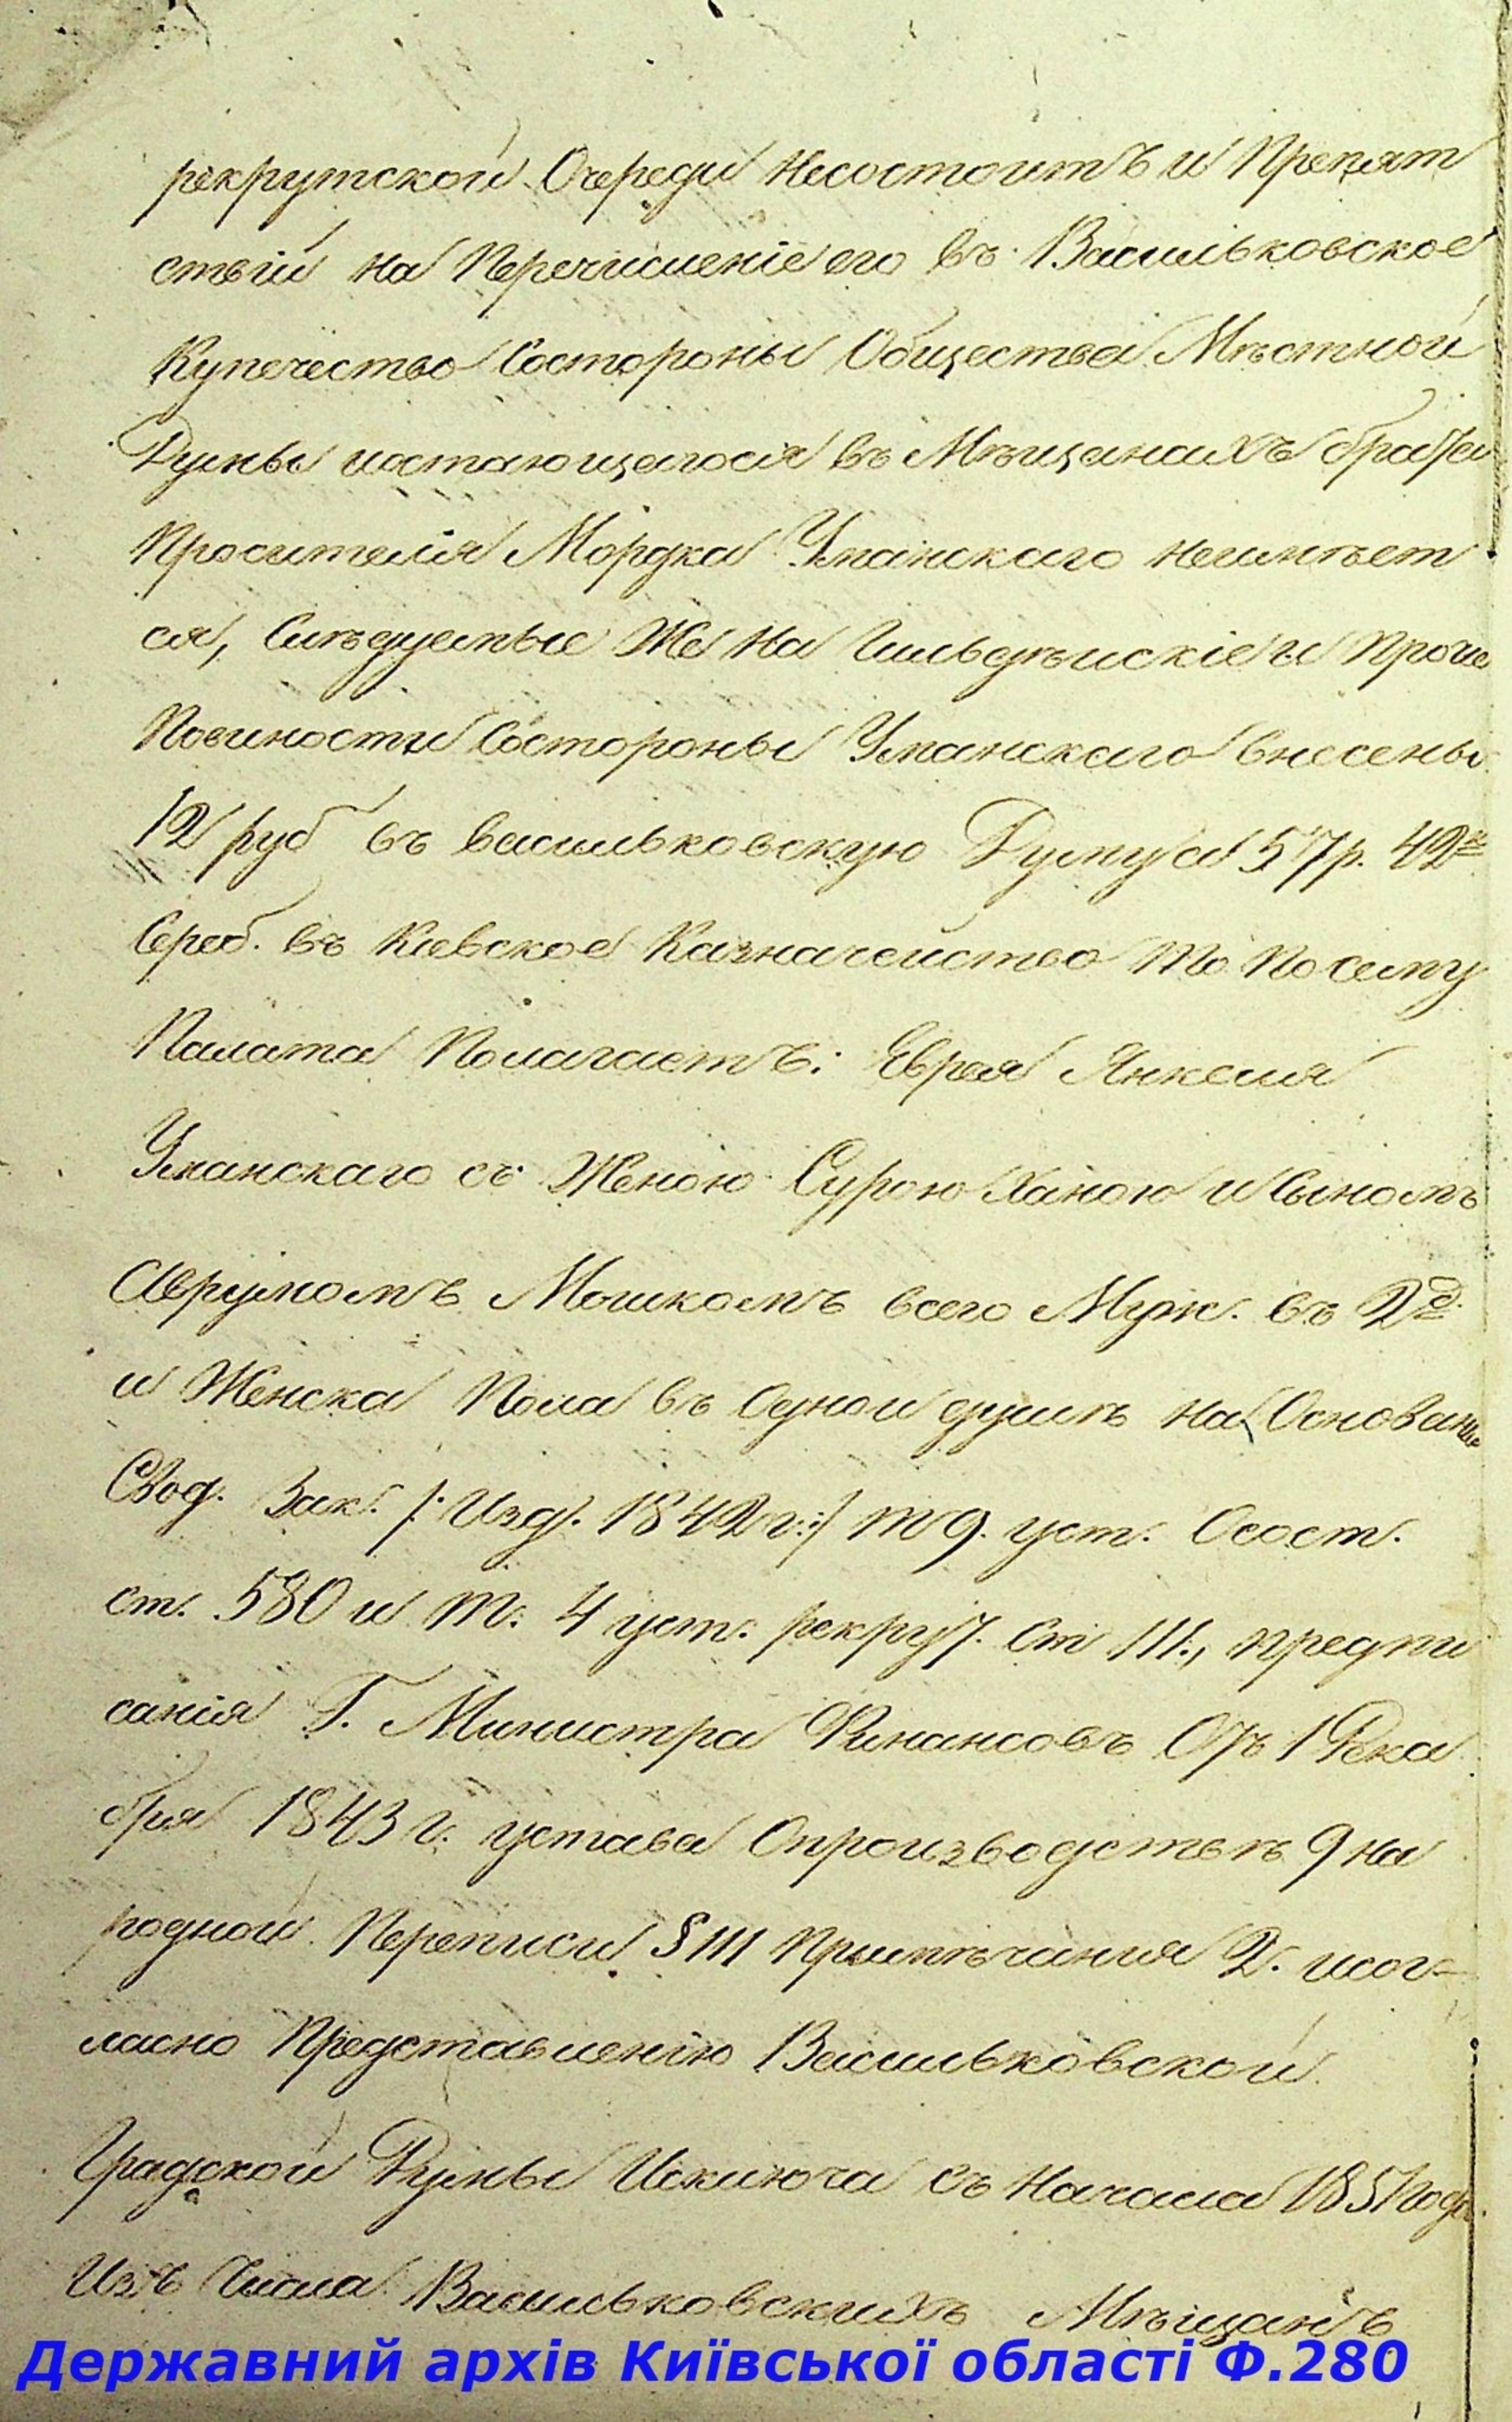 рекрутской Очереди несостоитъ и Препят
ствій на Перечисленіе его въ Васильковское
Купечество Состороны Общества Мѣстной
Думы иостающегося въ Мѣщанахъ брата
Просителя Мордка Уманскаго неимѣет
ся, Слѣдуемые Же на Гильдѣйскіе и Прочие
Повиности Состороны Уманскаго внесены
12 руб въ васильковскую Думу а 57 р. 42 к
Сереб. въ Киевское Казначейство то По сему
Палата Полагаетъ: Еврея Янкеля
Уманскаго съ Женою Сурою Ханою и Сыномъ
Аврумомъ Мошкомъ всего Муж. въ 2 д.
и Женска Пола въ Одной душѣ на Основание
Свод. Зак. /: Изд. 1842 г:/ т 9. уст. Осост.
ст. 580 и т. 4 уст. рекрут. Ст 111., предпи
санія Г. Министра Финансовъ Отъ 1 Дека
бря 1843 г. устава Опроизводствѣ 9 на
родной Переписи § 111 Примѣчания 2. исог-
ласно Представленію Васильковской
Градской Думы Исключа съ Начала 1851 года
Изъ Числа Васильковскихъ Мѣщанъ
Державний архів Київської області Ф.280